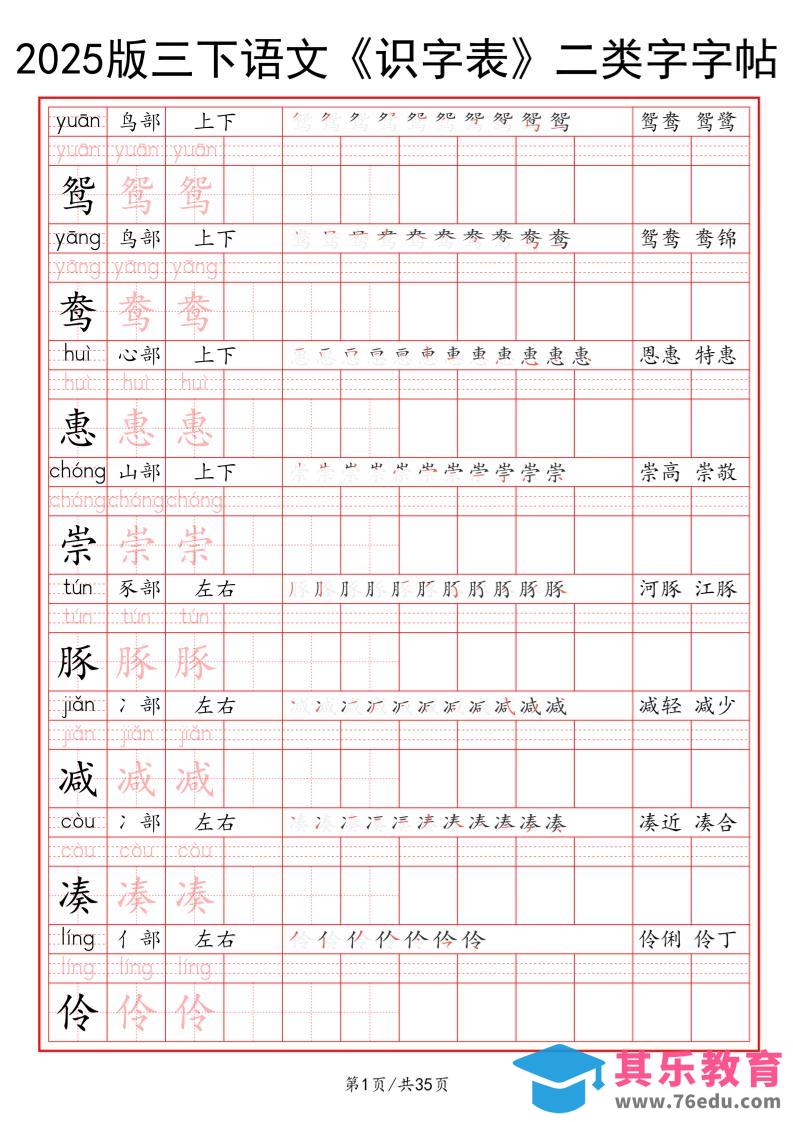 2025版三下语文《识字表》二类字字帖
yuān 鸟部 上下 鸳鸯 鸳鹭
yuān yuān yuān
鸳 鸳 鸳
yāng 鸟部 上下 鸳鸯 鸯锦
yāng yāng yāng
鸯 鸯 鸯
huì 心部 上下 恩惠 特惠
huì huì huì
惠 惠 惠
chóng 山部 上下 崇高 崇敬
chóng chóng chóng
崇 崇 崇
tún 豕部 左右 河豚 江豚
tún tún tún
豚 豚 豚
jiǎn 冫部 左右 减轻 减少
jiǎn jiǎn jiǎn
减 减 减
còu 冫部 左右 凑近 凑合
còu còu còu
凑 凑 凑
líng 亻部 左右 伶俐 伶丁
líng líng líng
伶 伶 伶
第1页/共35页
其乐教育
www.76edu.com